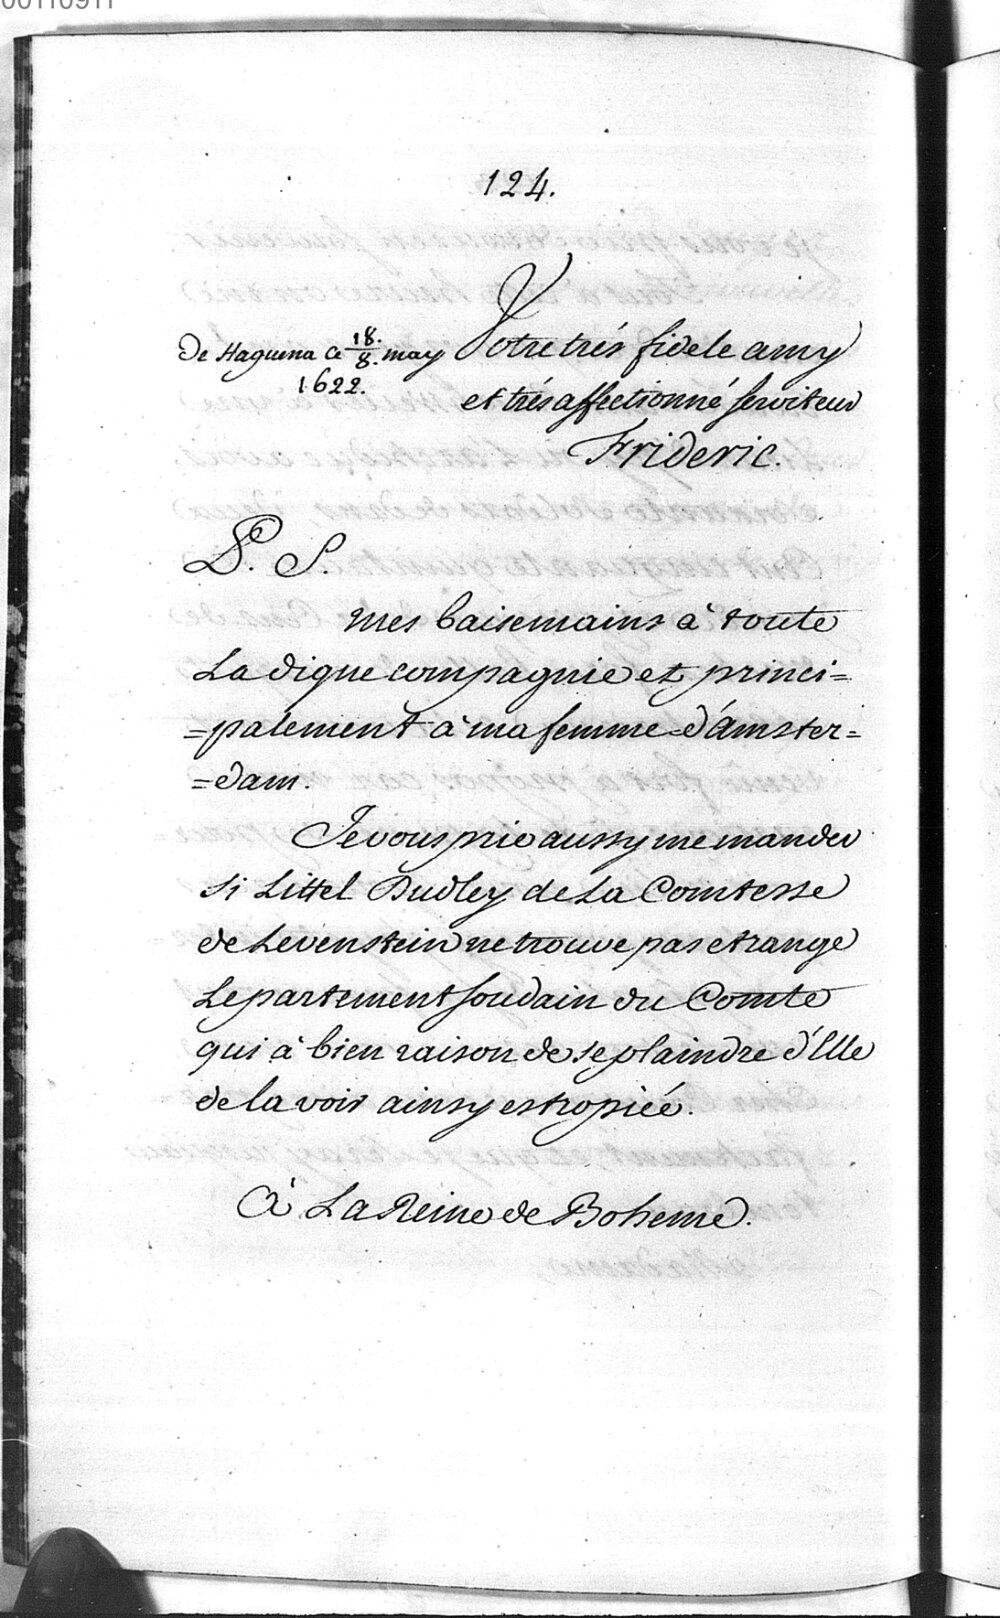 00110911
124.
De Haguena ce 18./8. may
1622.
Votre trés fidele amy
et trés affectionné serviteur
Frideric.
P. S.
Mes baisemains à toute
La digne compagnie et princi=
=palement à ma femme d'Amster=
=dam.
Je vous prie aussy me mander
si Littel Dudley de La Comtesse
de Levenstein ne trouve pas etrange
Le partement soudain du Comte
qui à bien raison de se plaindre d'Elle
de la voir ainsy estropiée.
à La Reine de Boheme.